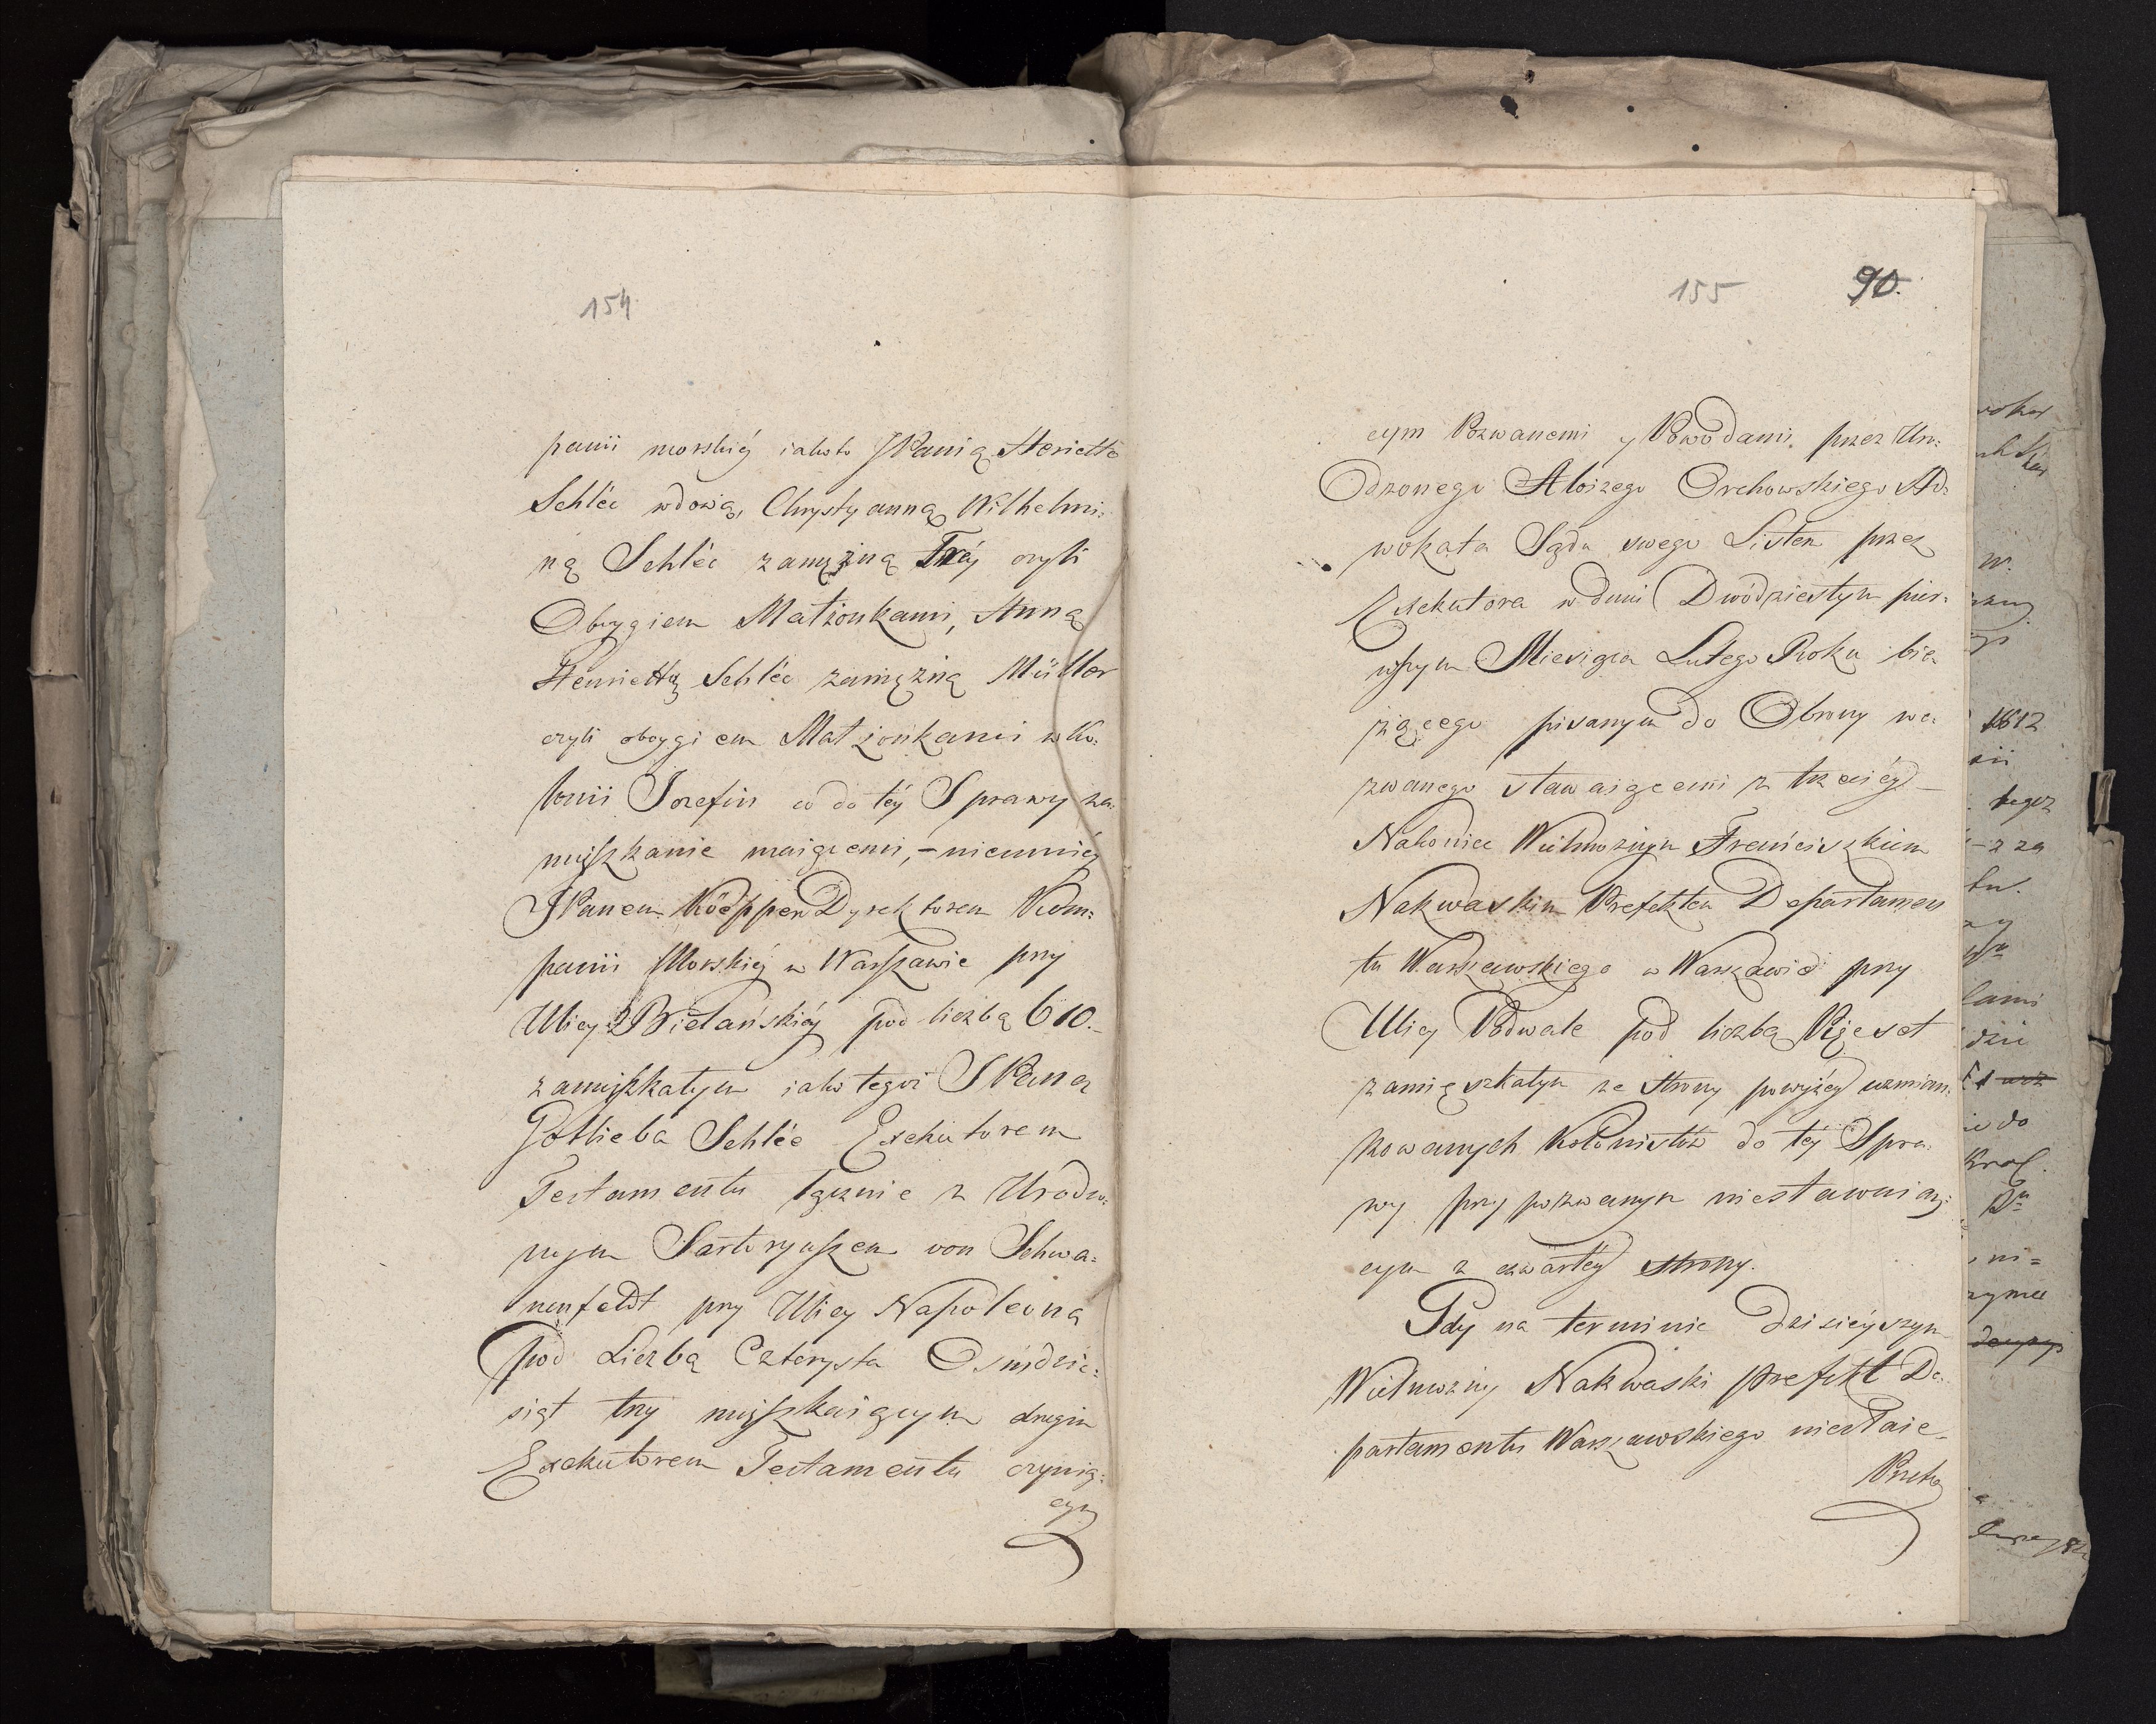 154
panii morskiéy iakoto JPanią Heriette
Schlée wdową, Chrystyanną Wilhelmi:
ną Schlée zamęzną Fréy czyli
Oboygiem Małżonkami, Anną
Henriettą Schlée zamęzną Müller
czyli oboygiem Małżonkami w Ko:
lonii Jozefin co do téy Sprawy za:
mięszkanie maiącemi, – niemniéy
JPanem Köeppen Dyrektorem Kom:
panii Morskiéy w Warszawie przy
Ulicy Bielańskiéy pod liczbą 610.
zamięszkałym iako tegoż JPana
Gottlieba Schlée Exekutorem
Testamentu łącznie z Urodzo:
nym Sartoryuszem von Schwa:
nenfeldt przy Ulicy Napoleona
pod Liczbą Czterysta Ośmdzie:
siąt trzy mięszkaiącym drugim
Exekutorem Testamentu czynią:
cym
155 90.
cym Pozwanemi y Powodami przez Uro:
Odzonego Aloizego Orchowskiego Ad:
wokata Sądu swego Listem przez
Exekutora w dniu Dwódziestym pier:
wszym Miesiąca Lutego Roku bie:
żącego pisanym do Obrony we:
zwanego stawaiącemi z trzeciéy
Nakoniec Wielmożnym Franciszkiem
Nakwaskim Prefektem Departamen
tu Warszawskiego w Warszawie przy
Ulicy Podwale pod liczbą Pięćset
zamięszkałym ze strony powyżéy wzmian:
kowanych Kolonistów do téy Spra:
wy przypozwanym niestawaiąc:
cym z czwartéy strony.
Gdy na terminie dzisiéyszym
Wielmożny Nakwaski Prefekt De:
partamentu Warszawskiego niestaie
1812